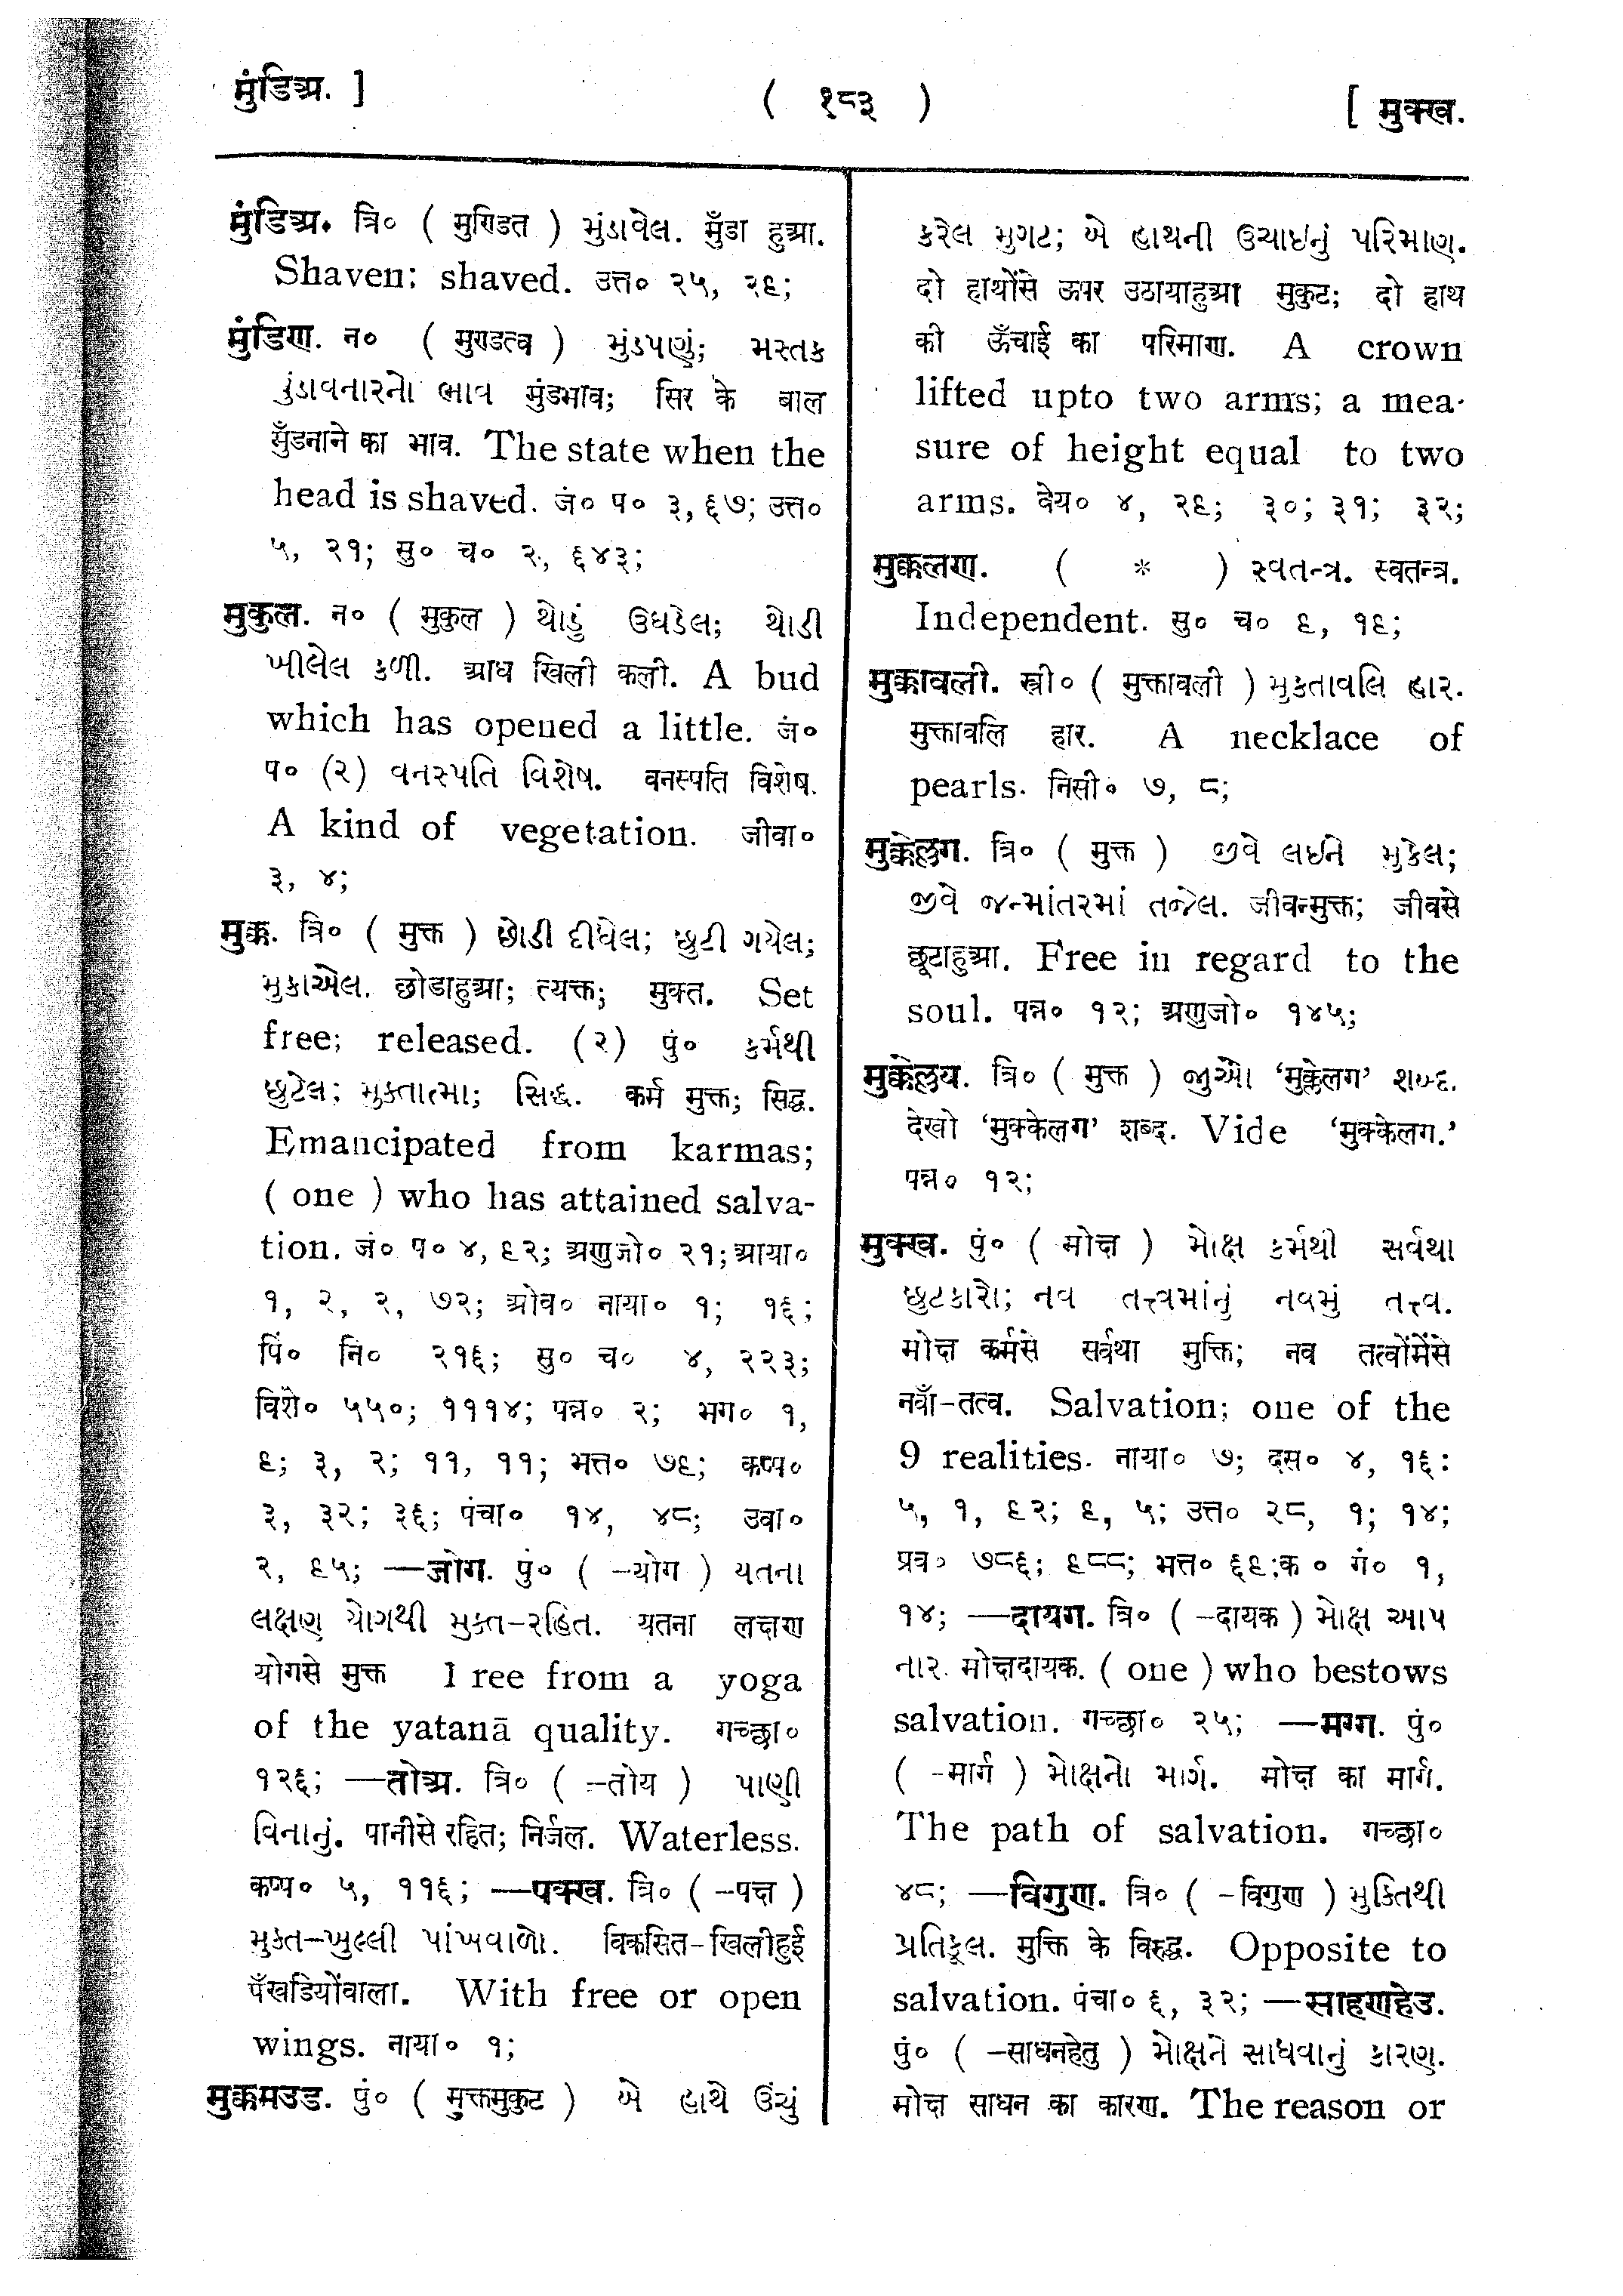 मुंडिअ. ]
( १८३ )
[ मुक्ख.
मुंडिअ. त्रि० ( मुण्डित ) મુંડાવેલ. मुँडा हुआ.
Shaven; shaved. उत्त० २५, २६;
मुंडिण. न० ( मुण्डत्व ) મુંડપણું; મસ્તક
મુંડાવનારનો ભાવ मुंडभाव; सिर के बाल
मुँडनाने का भाव. The state when the
head is shaved. जं० प० ३, ६७; उत्त०
५, २१; सु० च० २, ६४३;
मुकुल. न० ( मुकुल ) થોડું ઉઘડેલ; થોડી
ખીલેલ કળી. आध खिली कली. A bud
which has opened a little. जं०
प० (२) વનસ્પતિ વિશેષ. वनस्पति विशेष.
A kind of vegetation. जीवा०
३, ४;
मुक्क. त्रि० ( मुक्त ) છોડી દીધેલ; છુટી ગયેલ;
મુકાએલ. छोडाहुआ; त्यक्त; मुक्त. Set
free; released. (२) पुं० કર્મથી
છુટેલ; મુક્તાત્મા; સિદ્ધ. कर्म मुक्त; सिद्ध.
Emancipated from karmas;
( one ) who has attained salva-
tion. जं० प० ४, ६२; अणुजो० २१; आया०
१, २, २, ७२; ओव० नाया० १; १६;
पिं० नि० २१६; सु० च० ४, २२३;
विशे० ५५०; १११४; पन्न० २; भग० १,
६; ३, २; ११, ११; भत्त० ७६; कप्प०
३, ३२; ३६; पंचा० १४, ४८; उवा०
२, ६५; —जोग. पुं० ( -योग ) યતના
લક્ષણ યોગથી મુક્ત-રહિત. यतना लक्षण
योगसे मुक्त ree from a yoga
of the yatanā quality. गच्छा०
१२६; —तोअ. त्रि० ( -तोय ) પાણી
વિનાનું. पानीसे रहित; निर्जल. Waterless.
कप्प० ५, ११६; —पक्ख. त्रि० ( -पक्ष )
મુક્ત-ખુલ્લી પાંખવાળો. विकसित-खिलीहुई
पँखडियोंवाला. With free or open
wings. नाया० १;
मुक्कमउड. पुं० ( मुक्तमुकुट ) બે હાથે ઉંચું
કરેલ મુગટ; બે હાથની ઉચાઇનું પરિમાણ.
दो हाथोंसे ऊपर उठायाहुआ मुकुट; दो हाथ
की ऊँचाई का परिमाण. A crown
lifted upto two arms; a mea-
sure of height equal to two
arms. वेय० ४, २६; ३०; ३१; ३२;
मुक्कलण. ( * ) સ્વતન્ત્ર. स्वतन्त्र.
Independent. सु० च० ६, १६;
मुक्कावली. स्त्री० ( मुक्तावली ) મુકતાવલિ હાર.
मुक्तावलि हार. A necklace of
pearls. निसी० ७, ८;
मुक्केल्लग. त्रि० ( मुक्त ) જીવે લઈને મુકેલ;
જીવે જન્માંતરમાં તજેલ. जीवन्मुक्त; जीवसे
छूटाहुआ. Free in regard to the
soul. पन्न० १२; अणुजो० १४५;
मुक्केल्लय. त्रि० ( मुक्त ) જુઓ ‘मुक्केलग’ શબ્દ.
देखो ‘मुक्केलग’ शब्द. Vide ‘मुक्केलग.’
पन्न० १२;
मुक्ख. पुं० ( मोक्ष ) મોક્ષ કર્મથી સર્વથા
છુટકારો; નવ તત્ત્વમાંનું નવમું તત્ત્વ.
मोक्ष कर्मसे सर्वथा मुक्ति; नव तत्वोंमेंसे
नवाँ-तत्व. Salvation; one of the
9 realities. नाया० ७; दस० ४, १६:
५, १, ६२; ६, ५; उत्त० २८, १; १४;
प्रव० ७८६; ६८८; भत्त० ६६; क० गं० १,
१४; —दायग. त्रि० ( -दायक ) મોક્ષ આપ
નાર. मोक्षदायक. ( one ) who bestows
salvation. गच्छा० २५; —मग्ग. पुं०
( -मार्ग ) મોક્ષનો માર્ગ. मोक्ष का मार्ग.
The path of salvation. गच्छा०
४८; —विगुण. त्रि० ( -विगुण ) મુક્તિથી
પ્રતિકૂલ. मुक्ति के विरुद्ध. Opposite to
salvation. पंचा० ६, ३२; —साहणहेउ.
पुं० ( -साधनहेतु ) મોક્ષને સાધવાનું કારણ.
मोक्ष साधन का कारण. The reason or